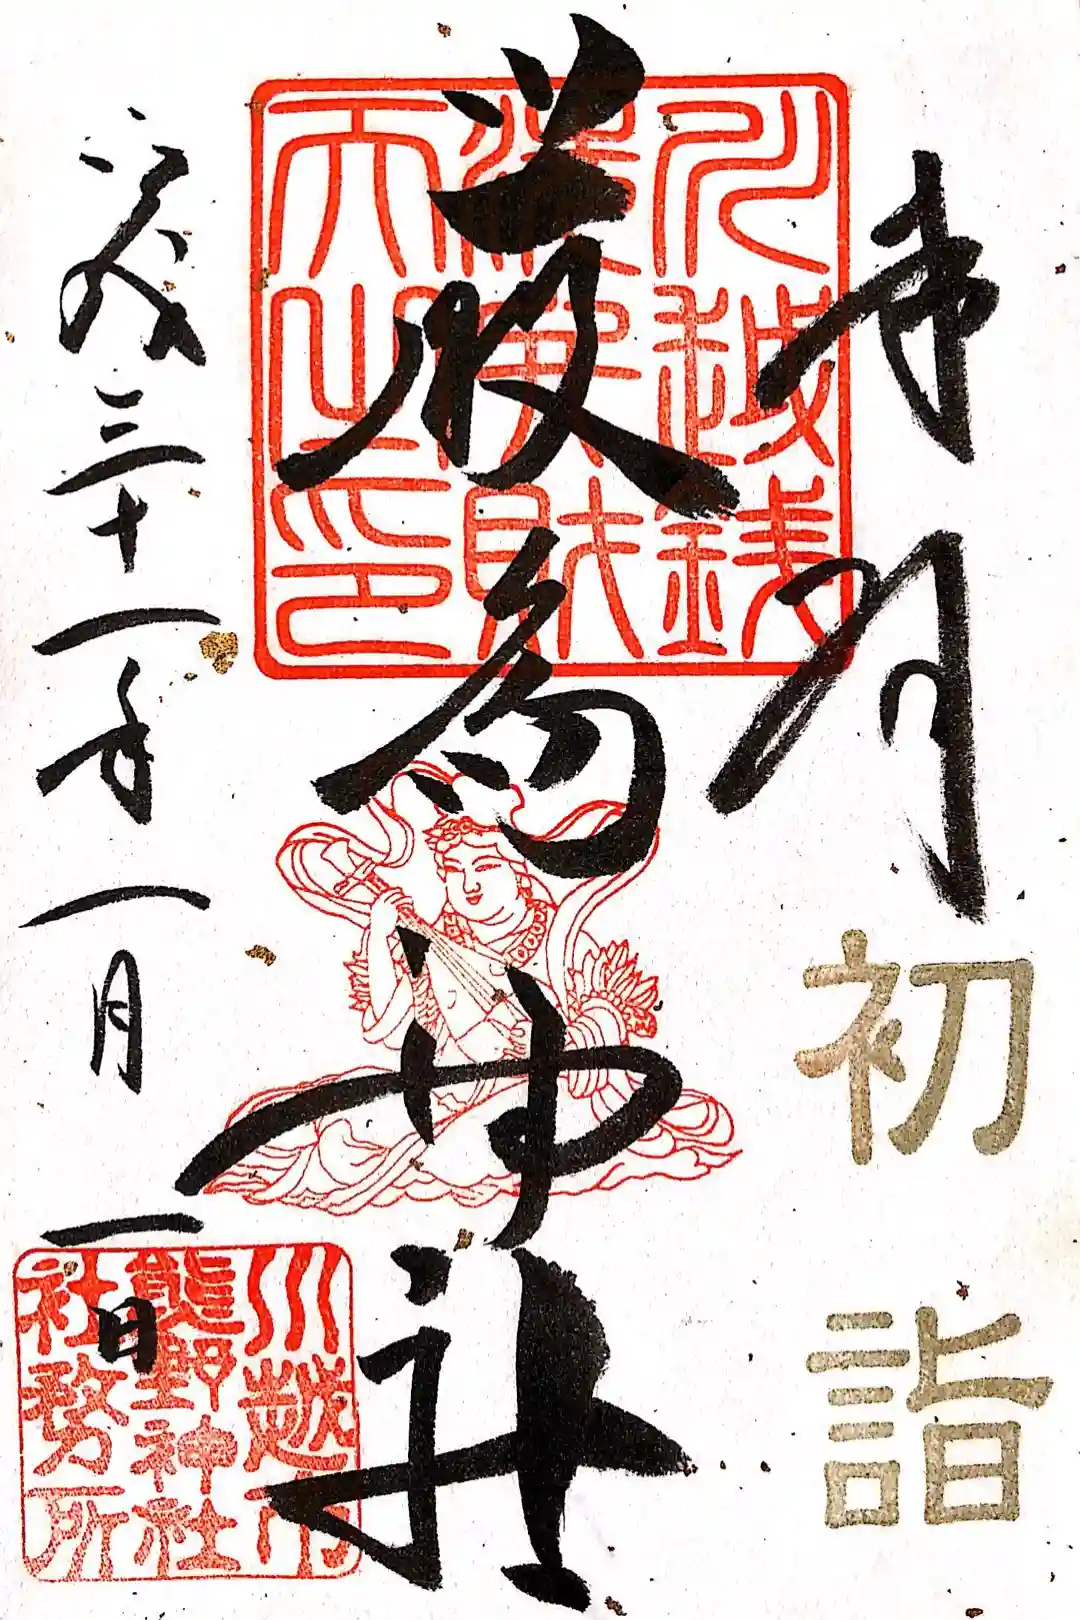 奉拝
初詣
川越銭
洗弁財
天之印
厳島神社
平成三十一年一月一日
川越市
熊野神社
社務所